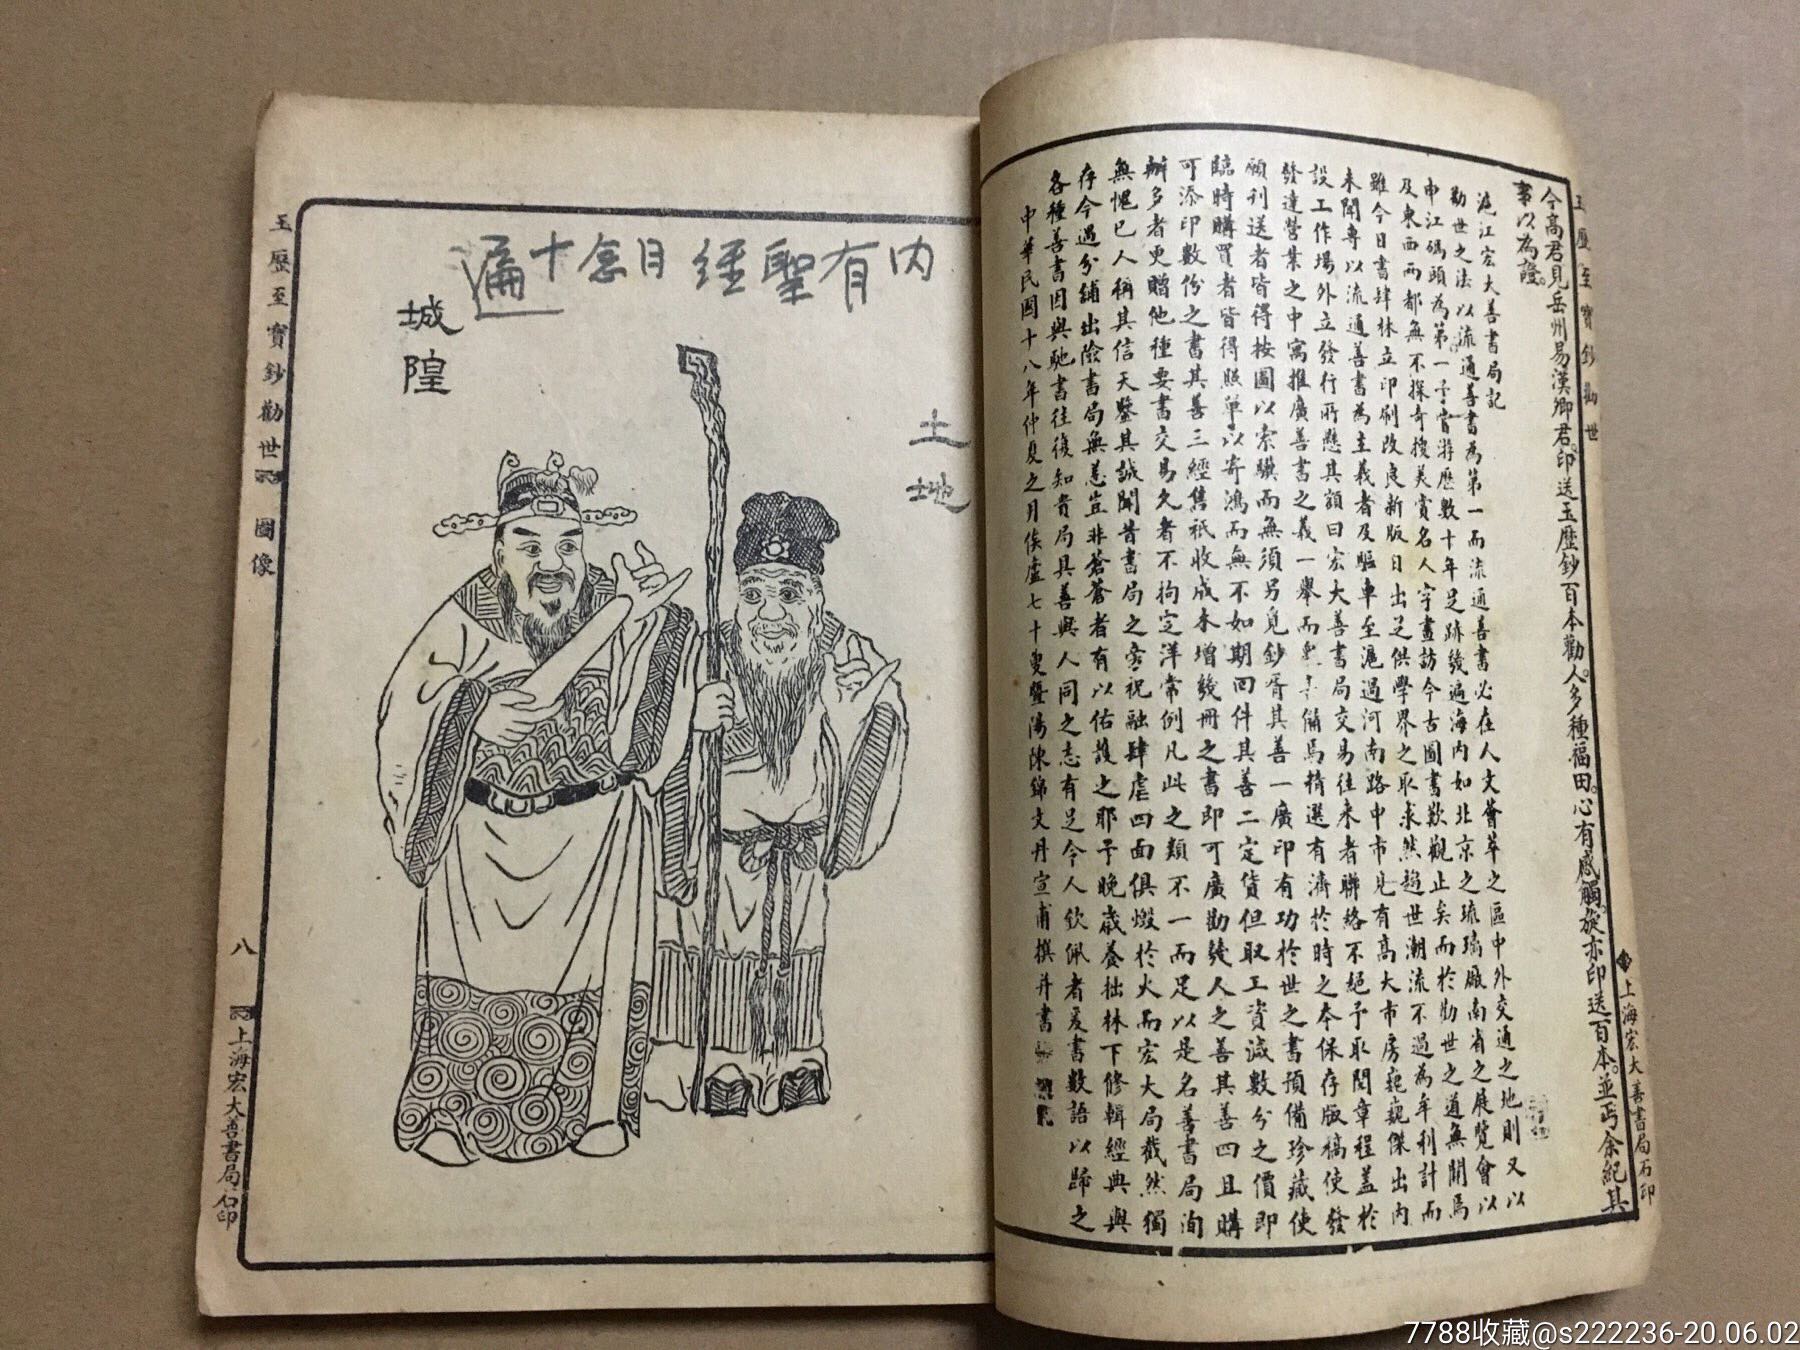 今高君見岳州易漢卿君印送玉歷鈔百本勸人多種福田心有感觸旋亦印送百本並丐余紀其
事以為證
滬江宏大善書局記
勸世之法以流通善書為第一而流通善書必在人文薈萃之區中外交通之地則又以
申江碼頭為第一予嘗游歷數十年足跡幾遍海內如北京之琉璃廠南省之展覽會以
及東西兩都無不探奇搜美賞名人字畫訪今古圖書歎觀止矣而於勸世之道無聞焉
雖今日書肆林立印刷改良新版日出足供學界之取求然趨世潮流不過為牟利計而
未聞專以流通善書為主義者及驅車至滬過河南路中市見有高大市房巍巍傑出內
設工作場外立發行所懸其額曰宏大善書局交易往來者聯絡不絕予取閱章程蓋於
發達營業之中寓推廣善書之義一舉而 備焉精選有濟於時之本保存版稿使發
願刊送者皆得按圖以索驥而無須另覓鈔胥其善一廣印有功於世之書預備珍藏使
臨時購買者皆得照單以寄鴻而無不如期回件其善二定貨但取工資減數分之價即
可添印數份之書其善三經售祇收成本增幾冊之書即可廣勸幾人之善其善四且購
辦多者更贈他種要書交易久者不拘定洋常例凡此之類不一而足以是名善書局洵
無愧已人稱其信天鑒其誠聞昔書局之旁祝融肆虐四面俱燬於火而宏大局截然獨
存今遇分鋪出險書局無恙豈非蒼蒼者有以佑護之耶予晚歲養拙林下修輯經典與
各種善書因與馳書往後知貴局具善與人同之志有足令人欽佩者爰書數語以歸之
中華民國十八年仲夏之月俟廬七十叟暨陽陳錦文丹宣甫撰并書
玉歷至寶鈔勸世
上海宏大善書局石印
內有聖經日念十遍
土地
城隍
玉歷至寶鈔勸世 圖像 八 上海宏大善書局石印
7788收藏@s222236-20.06.02